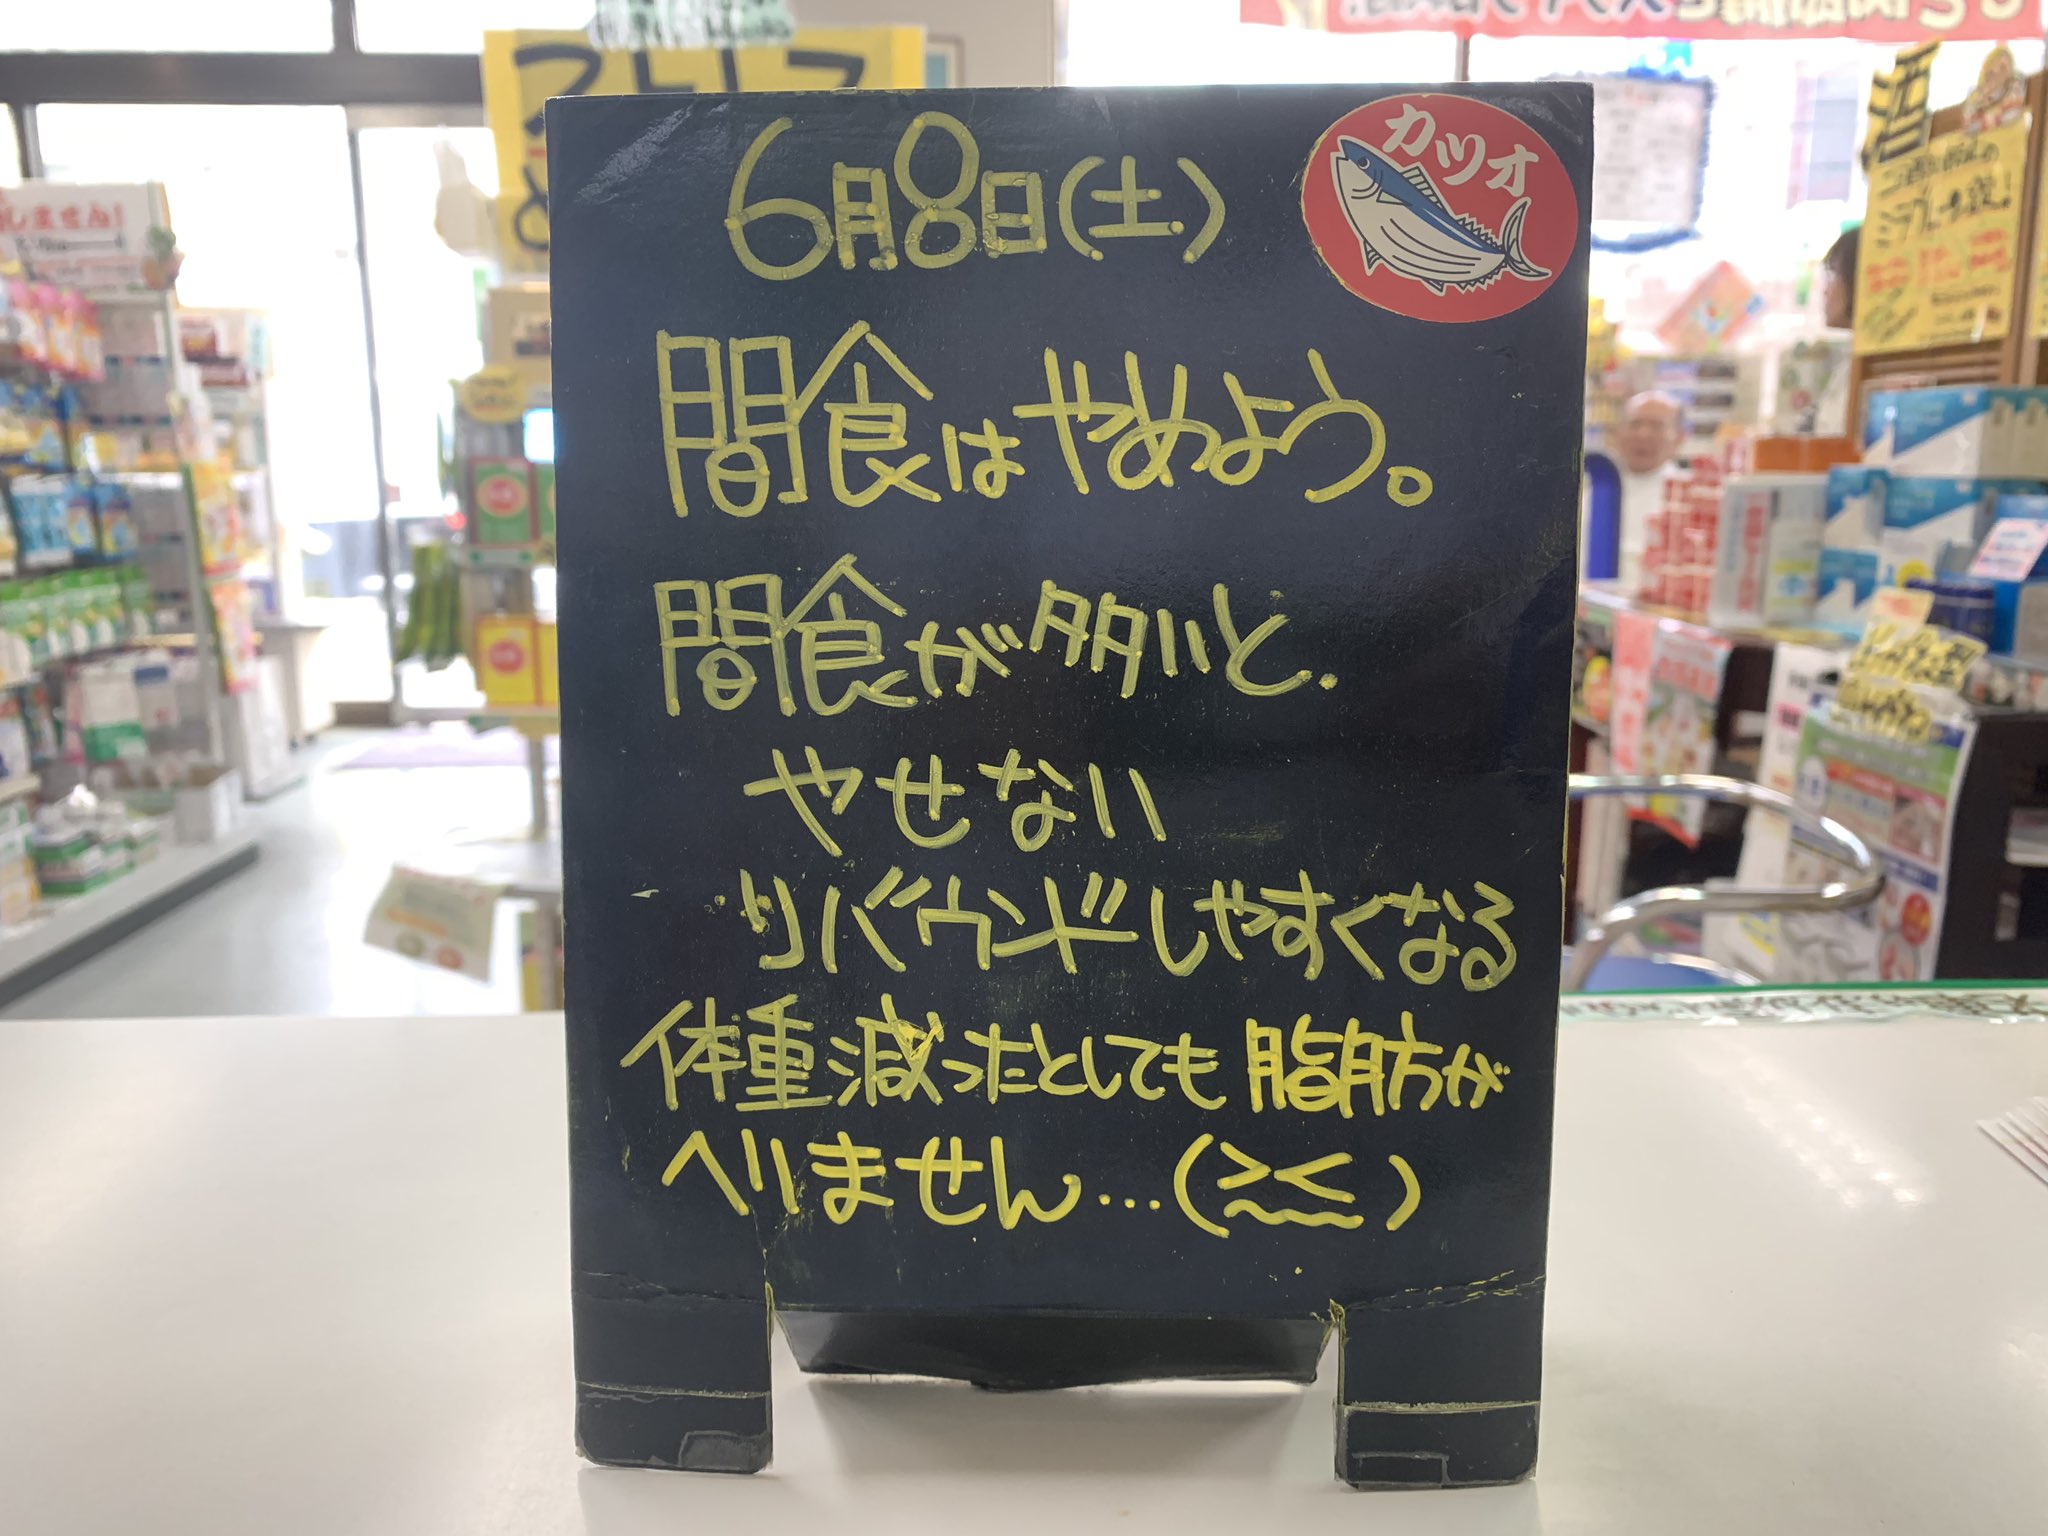 6月8日(土)
カツオ
間食はやめよう。
間食が多いと、
やせない
リバウンドしやすくなる
体重減ったとしても脂肪が
へりません…(≧〜≦)
しません!
酒